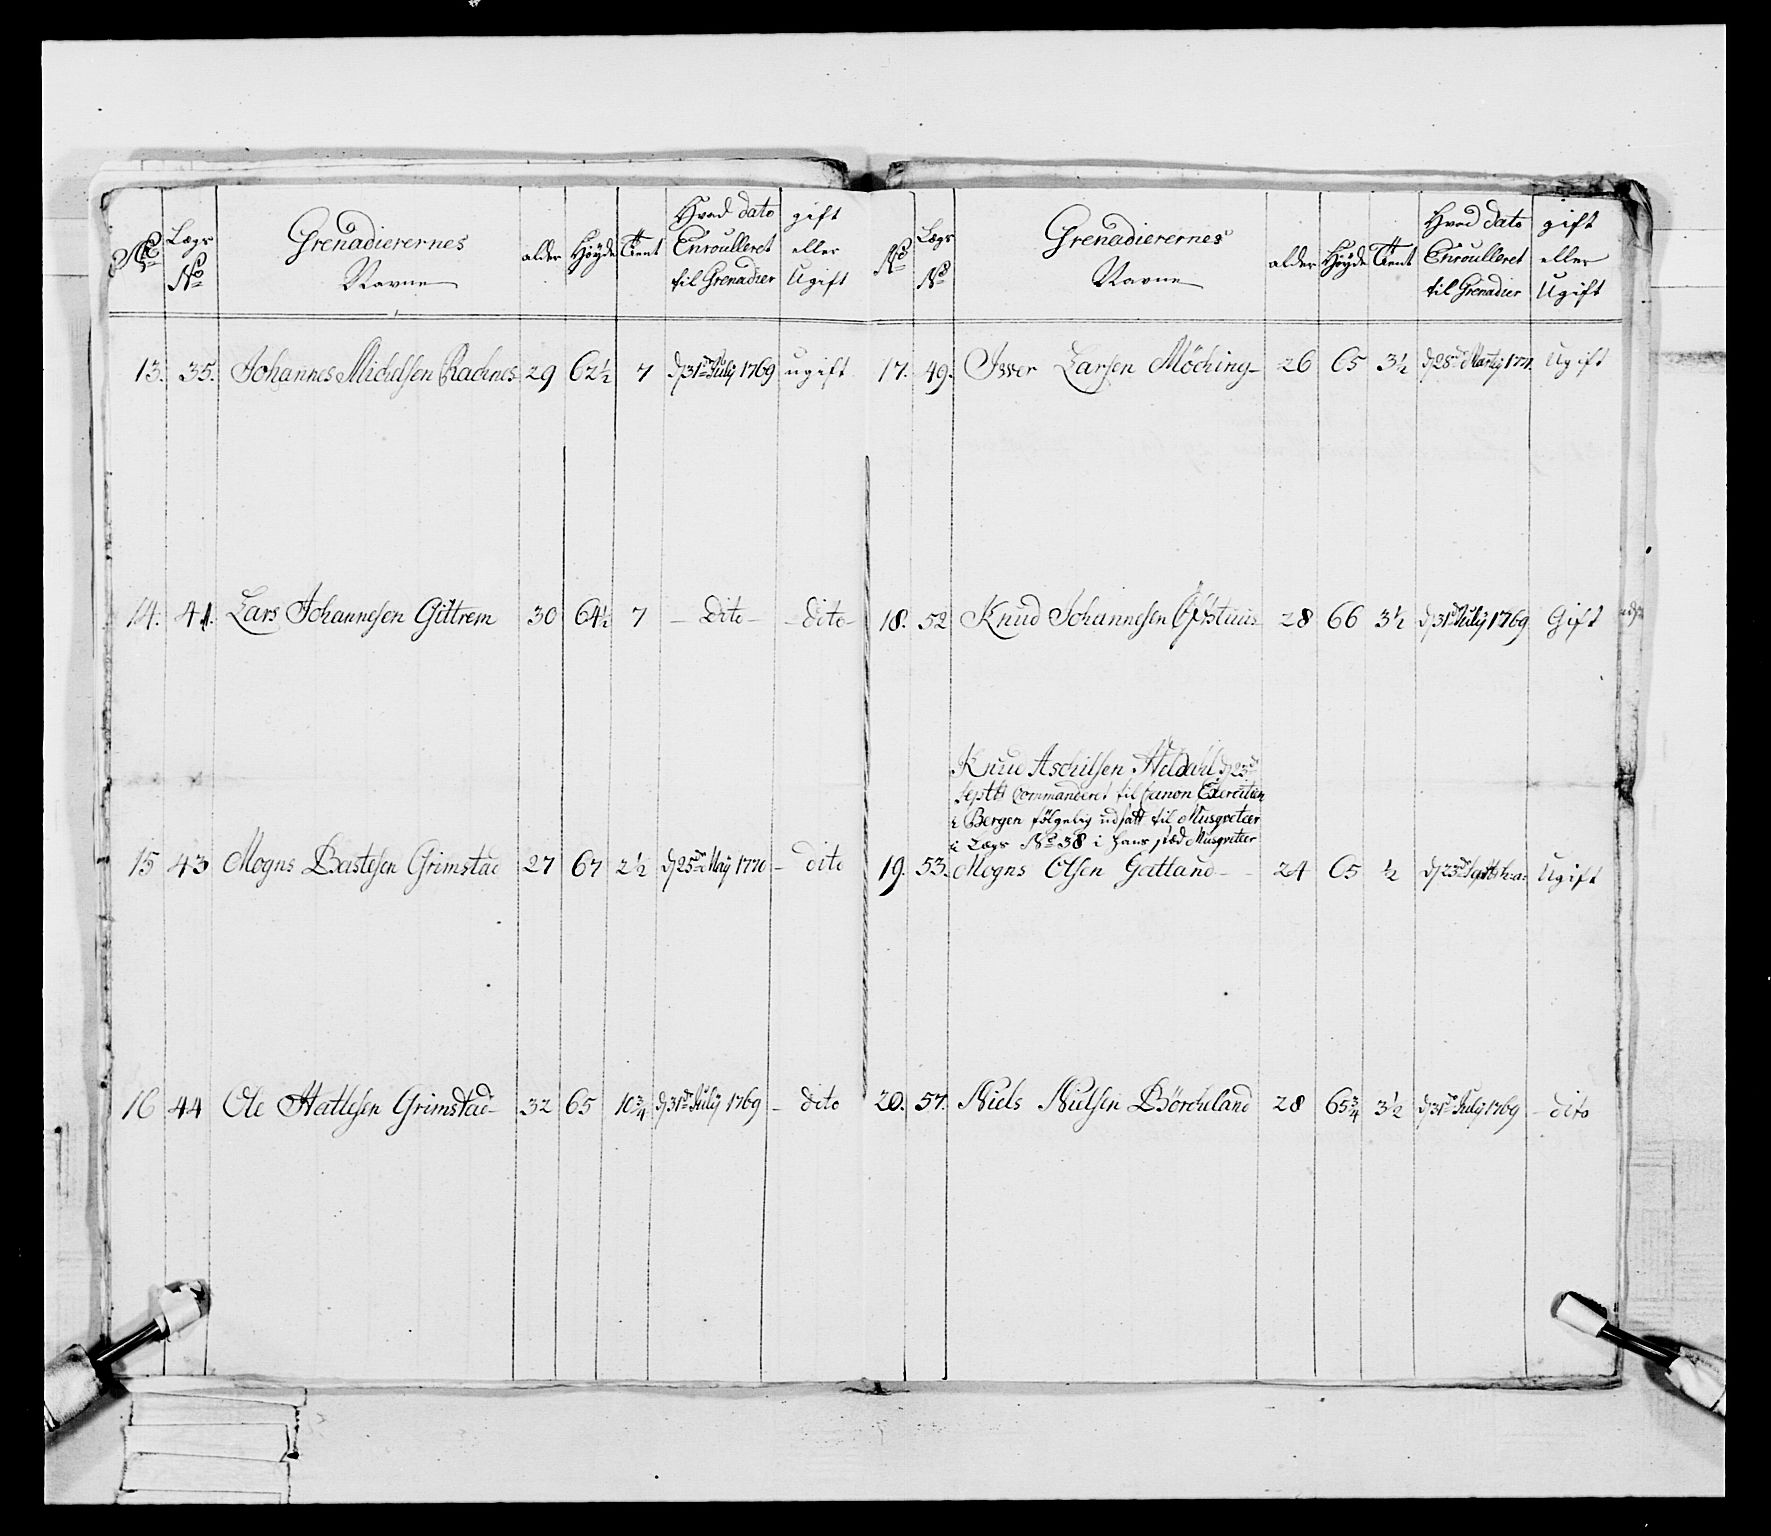 No Lægs No Grenadierernes Navne alder Høyde Tient Hvad dato Enroulleret til Grenadier gift eller Ugift
13. 35. Johannes Michelsen Rachnes 29 62½ 7 d 31te July 1769 ugift
14. 41. Lars Johannesen Gittrem 30 64½ 7 – dito – – dito –
15 43 Mogns Bastesen Grimstad 27 67 2½ d 25de May 1770 – dito
16 44 Ole Hattesen Grimstad – 32 65 10¾ d 31te July 1769 – dito
No Lægs No Grenadierernes Navne alder Høyde Tient Hvad dato Enroulleret til Grenadier gift eller Ugift
17. 49. Iver Larsen Möching – 26 65 3½ d 28de Martij 1771. Ugift
18. 52 Knud Johannesen 28 66 3½ d 31te July 1769 Gift
Knud Aschilsen d 23de
Septb Commanderet til Canon Exercitien
i Bergen følgelig udsatt til Musqveteer
i Lægs No 38 i hans stæd Musqveteer
19. 53. Mogns Olsen Gatland – – 24 65 ½ d 23de Septb h: a: Ugift
20. 57. Niels Nielsen Börcheland 28 65¾ 3½ d 31te July 1769 – dito